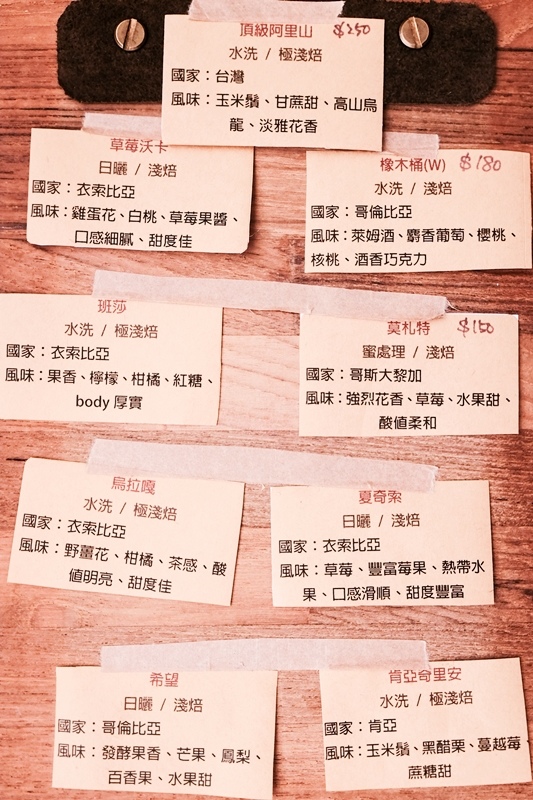 頂級阿里山 $250
水洗 / 極淺焙
國家：台灣
風味：玉米鬚、甘蔗甜、高山烏
龍、淡雅花香
草莓沃卡
日曬 / 淺焙
國家：衣索比亞
風味：雞蛋花、白桃、草莓果醬、
口感細膩、甜度佳
橡木桶(W) $180
水洗 / 淺焙
國家：哥倫比亞
風味：萊姆酒、麝香葡萄、櫻桃、
核桃、酒香巧克力
班莎
水洗 / 極淺焙
國家：衣索比亞
風味：果香、檸檬、柑橘、紅糖、
body 厚實
莫札特 $150
蜜處理 / 淺焙
國家：哥斯大黎加
風味：強烈花香、草莓、水果甜、
酸值柔和
烏拉嘎
水洗 / 極淺焙
國家：衣索比亞
風味：野薑花、柑橘、茶感、酸
值明亮、甜度佳
夏奇索
日曬 / 淺焙
國家：衣索比亞
風味：草莓、豐富莓果、熱帶水
果、口感滑順、甜度豐富
希望
日曬 / 淺焙
國家：哥倫比亞
風味：發酵果香、芒果、鳳梨、
百香果、水果甜
肯亞奇里安
水洗 / 極淺焙
國家：肯亞
風味：玉米鬚、黑醋栗、蔓越莓、
蔗糖甜